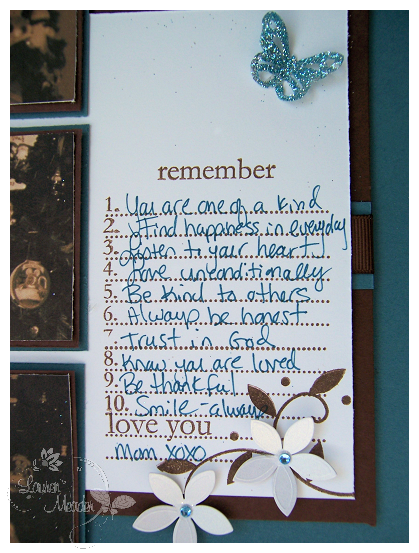 remember
1. You are one of a kind
2. Find happiness in everyday
3. Listen to your heart
4. Love unconditionally
5. Be kind to others
6. Always be honest
7. Trust in God
8. Know you are loved
9. Be thankful
10. Smile - always
love you
Mom xoxo
Lauren
Meader